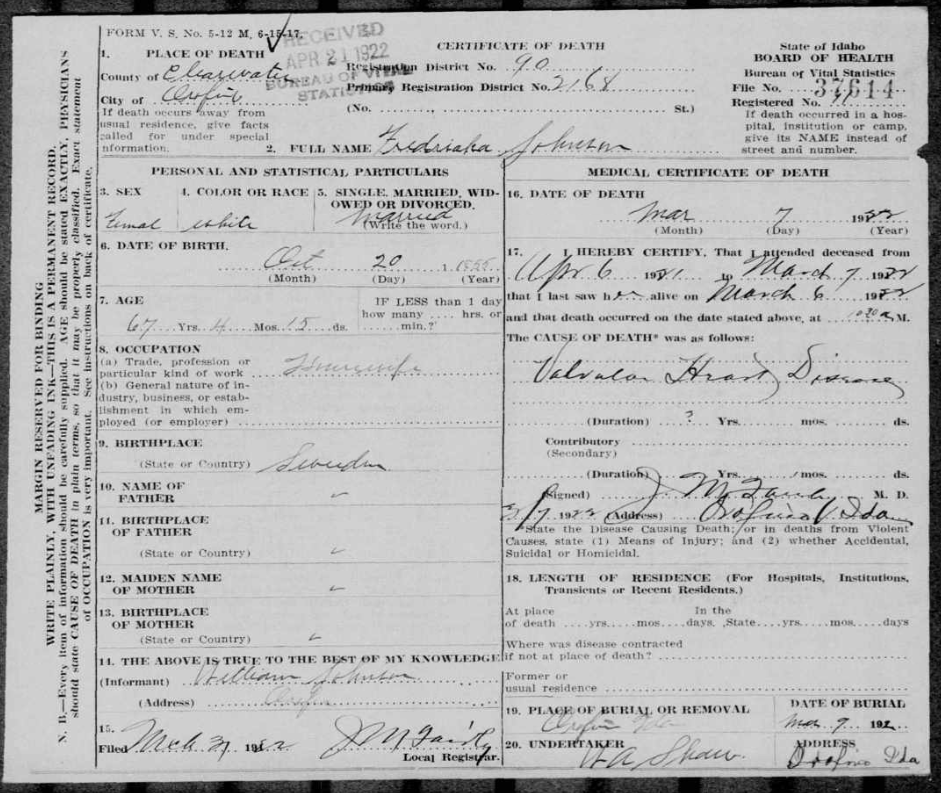 FORM V. S. No. 5-12 M. 6-15-17.
RECEIVED
APR 21 1922
BUREAU OF VITAL
STATISTICS
CERTIFICATE OF DEATH
State of Idaho
BOARD OF HEALTH
Bureau of Vital Statistics
File No. 37614
Registered No. 11
If death occurred in a hos-
pital, institution or camp,
give its NAME instead of
street and number.
1. PLACE OF DEATH
County of Clearwater
City of Orofino
If death occurs away from
usual residence, give facts
called for under special
nformation.
Registration District No. 90
Primary Registration District No. 2168
(No. St.)
2. FULL NAME Fredricka Johnson
MARGIN RESERVED FOR BINDING
WRITE PLAINLY, WITH UNFADING INK—THIS IS A PERMANENT RECORD.
N. B.—Every item of information should be carefully supplied. AGE should be stated EXACTLY. PHYSICIANS
should state CAUSE OF DEATH in plain terms, so that it may be properly classified. Exact statement
of OCCUPATION is very important. See instructions on back of certificate.
PERSONAL AND STATISTICAL PARTICULARS
3. SEX 4. COLOR OR RACE 5. SINGLE, MARRIED, WID-
OWED OR DIVORCED.
Femal white Married
(Write the word.)
6. DATE OF BIRTH.
Oct 20 1
(Month) (Day) (Year)
7. AGE
IF LESS than 1 day
how many .... hrs. or
...... min.?
67 Yrs. 4 Mos. 15 ds.
8. OCCUPATION
(a) Trade, profession or
particular kind of work Housewife
(b) General nature of in-
dustry, business, or estab-
lishment in which em-
ployed (or employer)
9. BIRTHPLACE
(State or Country) Sweden
10. NAME OF
FATHER
11. BIRTHPLACE
OF FATHER
(State or Country)
12. MAIDEN NAME
OF MOTHER
13. BIRTHPLACE
OF MOTHER
(State or Country)
14. THE ABOVE IS TRUE TO THE BEST OF MY KNOWLEDGE
(Informant) William Johnson
(Address) Orofino
15.
Filed Mch 31 1922 J M Fairly
Local Registrar.
MEDICAL CERTIFICATE OF DEATH
16. DATE OF DEATH
Mar 7 1922
(Month) (Day) (Year)
17. I HEREBY CERTIFY, That I attended deceased from
Apr 6 1921 to March 7 1922
that I last saw her alive on March 6 1922
and that death occurred on the date stated above, at 10 30 a M.
The CAUSE OF DEATH* was as follows:
Valvular Heart Disease
(Duration) ? Yrs. mos. ds.
Contributory
(Secondary)
(Duration) Yrs. mos. ds.
(Signed) J. M. Fairly M. D.
3/7 1922 (Address) Orofino Ida
*State the Disease Causing Death; or in deaths from Violent
Causes, state (1) Means of Injury; and (2) whether Accidental,
Suicidal or Homicidal.
18. LENGTH OF RESIDENCE (For Hospitals, Institutions,
Transients or Recent Residents.)
At place In the
of death ....yrs....mos....days. ,State....yrs....mos.....days
Where was disease contracted
if not at place of death?
Former or
usual residence
19. PLACE OF BURIAL OR REMOVAL DATE OF BURIAL
Orofino Ida Mar 9 192
20. UNDERTAKER ADDRESS
W A Shaw Orofino Ida